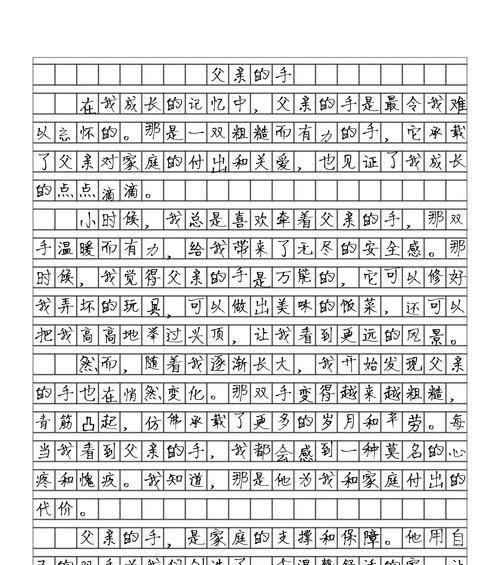 父亲的手
在我成长的记忆中，父亲的手是最令我难
以忘怀的。那是一双粗糙而有力的手，它承载
了父亲对家庭的付出和关爱，也见证了我成长
的点点滴滴。
小时候，我总是喜欢牵着父亲的手，那双
手温暖而有力，给我带来了无尽的安全感。那
时候，我觉得父亲的手是万能的，它可以修好
我弄坏的玩具，可以做出美味的饭菜，还可以
把我高高地举过头顶，让我看到更远的风景。
然而，随着我逐渐长大，我开始发现父亲
的手也在悄然变化。那双手变得越来越粗糙，
青筋凸起，仿佛承载了更多的岁月和辛劳。每
当我看到父亲的手，我都会感到一种莫名的心
疼和愧疚。我知道，那是他为我和家庭付出的
代价。
父亲的手，是家庭的支撑和保障。他用自